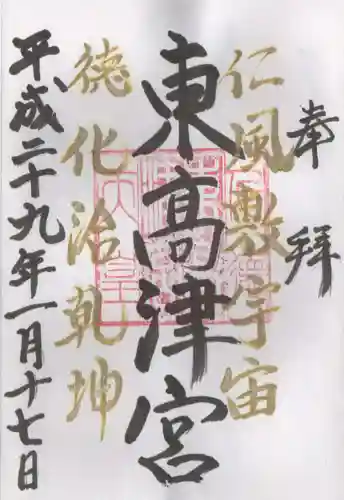 奉拝
仁風敷宇宙
東高津宮
徳化治乾坤
平成二十九年一月十七日